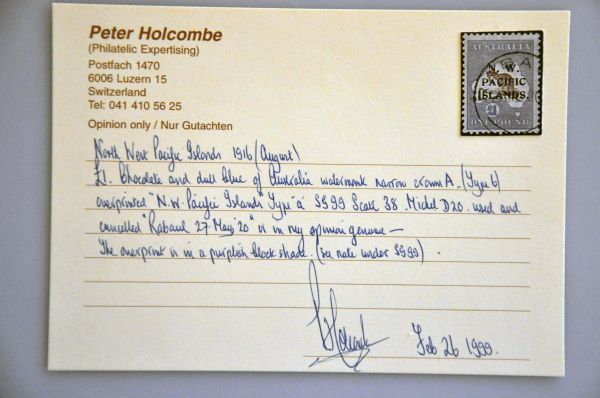 Peter Holcombe
(Philatelic Expertising)
Postfach 1470
6006 Luzern 15
Switzerland
Tel: 041 410 56 25
Opinion only / Nur Gutachten
AUSTRALIA
N. W.
PACIFIC
ISLANDS.
£1
ONE POUND
North West Pacific Islands 1916 (August)
£1. Chocolate and dull blue of Australia watermark narrow crown A. (Type 6)
overprinted "N.W. Pacific Islands" Type "a" SG99 Scott 38 Michel D20. used and
cancelled "Rabaul 27. May '20" is in my opinion genuine —
The overprint is in a purplish black shade. (see note under SG99).
Feb 26 1999.